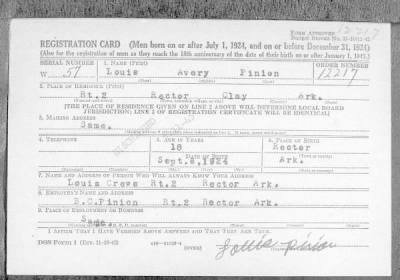 12217
FORM APPROVED
REGISTRATION CARD (Men born on or after July 1, 1924, and on or before December 31, 1924)
(Also for the registration of men as they reach the 18th anniversary of the date of their birth on or after January 1, 1943.)
SERIAL NUMBER 1. NAME (Print) ORDER NUMBER
W 57 Louis Avery Pinion 12217
2. PLACE OF RESIDENCE (Print)
Rt.2 Rector Clay Ark.
[THE PLACE OF RESIDENCE GIVEN ON LINE 2 ABOVE WILL DETERMINE LOCAL BOARD
JURISDICTION; LINE 2 OF REGISTRATION CERTIFICATE WILL BE IDENTICAL]
3. MAILING ADDRESS
Same.
4. TELEPHONE 5. AGE IN YEARS 6. PLACE OF BIRTH
18 Rector
DATE OF BIRTH
Sept.8,1924 Ark.
7. NAME AND ADDRESS OF PERSON WHO WILL ALWAYS KNOW YOUR ADDRESS
Louis Crews Rt.2 Rector Ark.
8. EMPLOYER'S NAME AND ADDRESS
B.C.Pinion Rt.2 Rector Ark.
9. PLACE OF EMPLOYMENT OR BUSINESS
Same.
I AFFIRM THAT I HAVE VERIFIED ABOVE ANSWERS AND THAT THEY ARE TRUE.
DSS Form 1 (OVER)